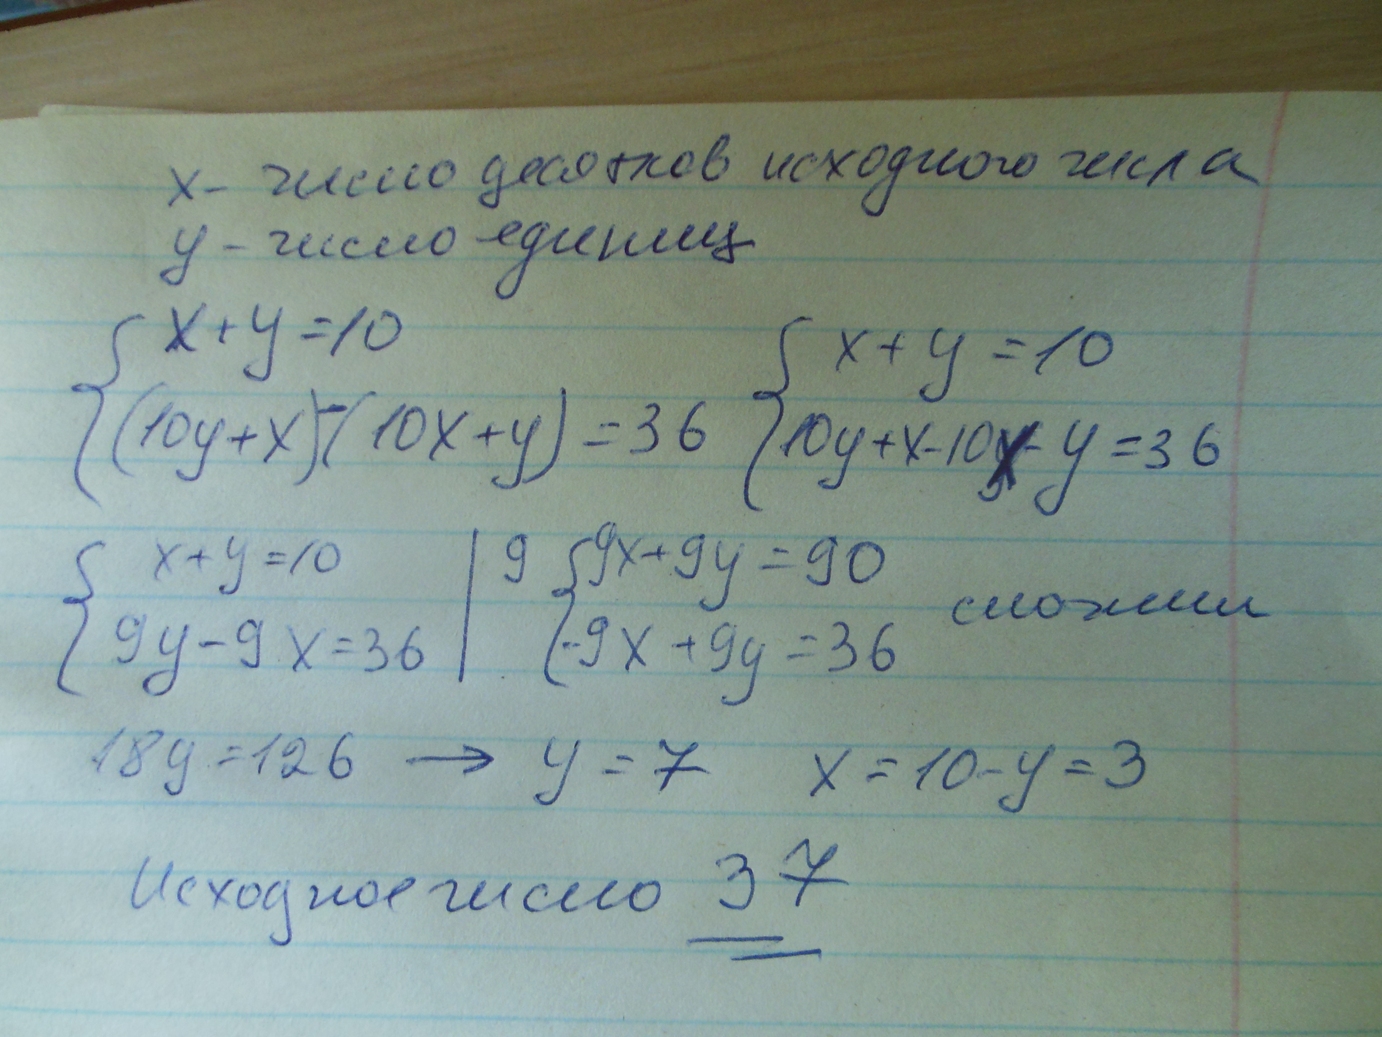 x - число десятков исходного числа
y - число единиц
{ x+y=10
{ (10y+x)-(10x+y)=36
{ x+y=10
{ 10y+x-10x-y=36
{ x+y=10 | 9
{ 9y-9x=36 |
{ 9x+9y=90
{ -9x+9y=36
сложим
18y=126 → y=7 x=10-y=3
Исходное число 37